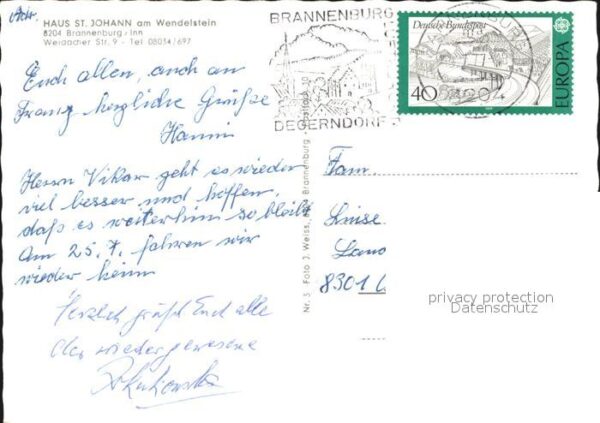 Adr.
HAUS ST. JOHANN am Wendelstein
8204 Brannenburg - Inn
Weidacher Str. 9 - Tel 08034/697
BRANNENBURG
DEGERNDORF
Deutsche Bundespost
40
EUROPA
Euch allen, auch an
Franz herzliche Grüße
Hanni
Herrn Vikar geht es wieder
viel besser und hoffen,
daß es weiterhin so bleibt
Am 25. 7. fahren wir
wieder heim
Herzlich grüßt Euch alle
der wiedergenesene
Nr. 5 Foto J. Weiss, Brannenburg
Fam.
Luise
Land
8301
privacy protection
Datenschutz